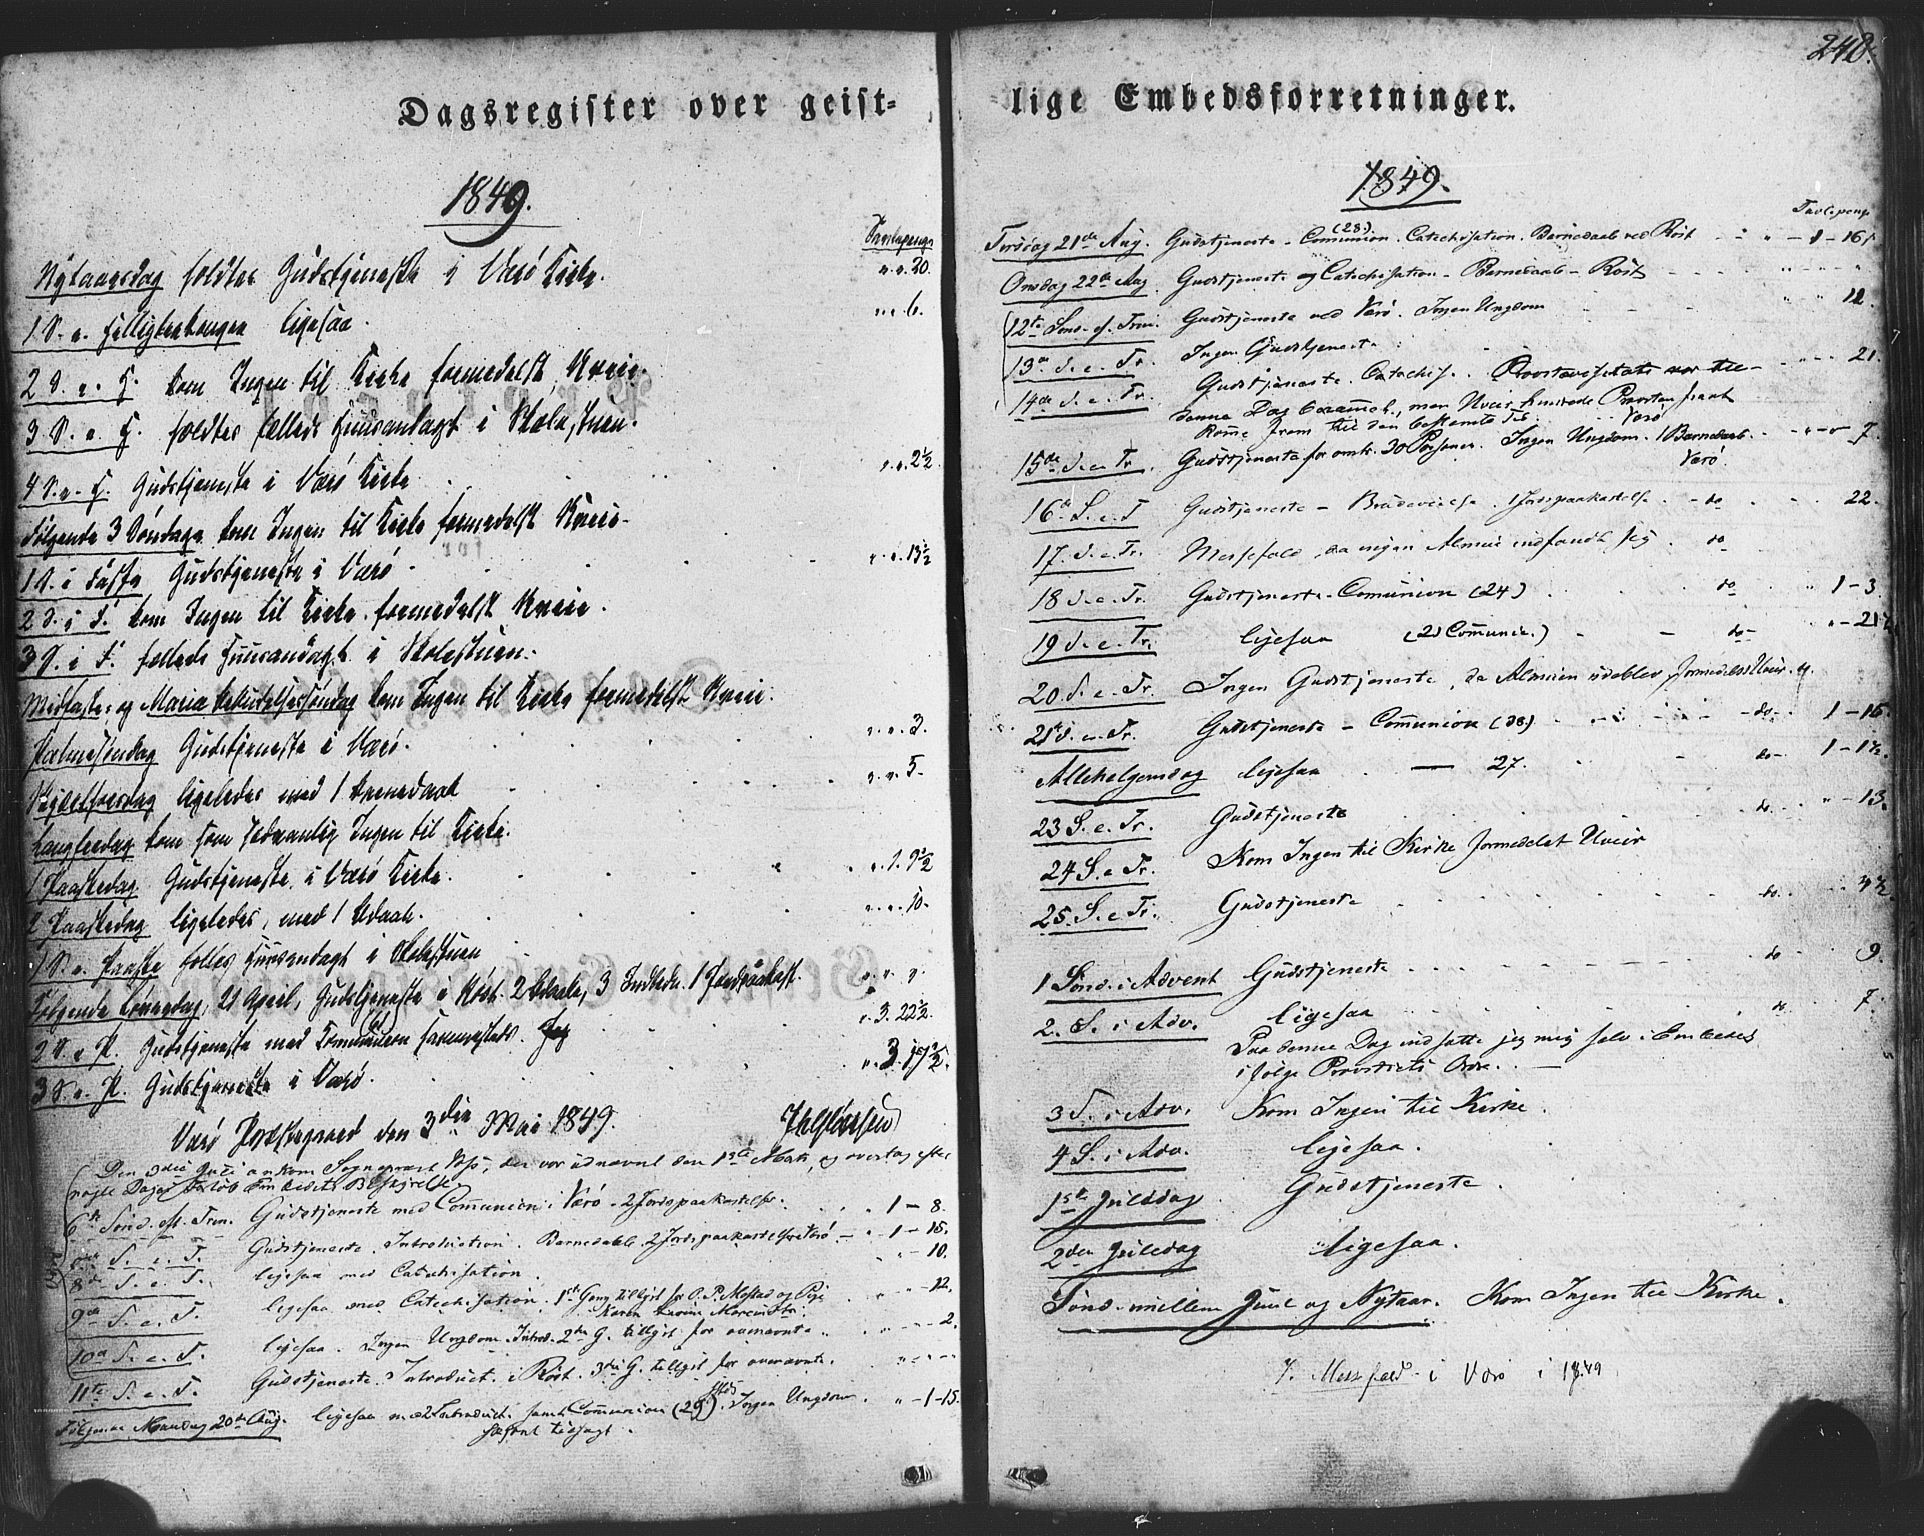 Dagsregister over geist=
1849.
Tavlepenge
Nytaarsdag holdtes Gudstjeneste i Værö Kirke. " " 30.
1 S. e. Helligtrekonger ligesaa. " " 6.
2 S. e. H. kom Ingen til Kirke formedelst Uveir.
3 S. e. H. holdtes fælleds Huusandagt i Skolestuen.
4 S. e. H. Gudstjeneste i Værö Kirke " " 2½.
Fölgende 3 Söndage kom Ingen til Kirke formedelst Uveir.
1 S. i Faste Gudstjeneste i Værö " " 13½
2 S. i F. kom Ingen til Kirke formedelst Uveir.
3 S. i F. fælleds Huusandagt i Skolestuen.
Midfaste- og Maria Bebudelsessöndag kom Ingen til Kirke formedelst Uveir.
Palmesöndag Gudstjeneste i Værö. " " 3.
Skjærtorsdag ligeledes med 1 Barnedaab " " 5.
Langfredag kom som sædvanlig Ingen til Kirke.
1 Paaskedag Gudstjeneste i Værö Kirke. " 1. 9½
2 Paaskedag ligeledes, med 1 Bdaab. " " 10.
1 S. e. Paaske fælles Huusandagt i Skolestuen " " "
Fölgende Löverdag, 21 April, Gudstjeneste i Röst. 2 Bdaabe, 3 Indledn. 1 Jordpaakast. " 3. 22½.
2 S. e. P. Gudstjeneste med Communion sammesteds.
3 S. e. P. Gudstjeneste i Værö.
Værö Præstegaard den 3die Mai 1849.
Den 3die Juli ankom Sognepræst, der var udnævnt den 1ste Marts, og overtog efter
nogle Dages Forlöb Embedets Bestyrelse.
6te Sönd. ef. Trin. Gudstjeneste med Communion i Værö. 2 Jordspaakastelse. " 1 - 8.
S. e. T. Gudstjeneste. Introduction. Barnedaab. 2 Jordspaakastelse Værö. " 1 - 15.
8de S. e. T. ligesaa med Catechisation. " - 10.
9de S. e. T. ligesaa med Catechisation. 1ste Gang tillyst for O. P. Mostad og Pige " " - 12.
10de S. e. T. ligesaa. Ingen Ungdom. Introd. 2den G. tillyst for ovennævnte. " " - 2.
11te S. e. T. Gudstjeneste. Introduct. i Röst. 3die G. tillyst for ovennævnte. " " "
Fölgende Mandag 20de Aug. ligesaa med Introduct. samt Communion (29). Ingen Ungdom " - 1 - 15.
tilsagt.
240.
lige Embedsforretninger.
1849.
Tavlepeng
Tirsdag 21de Aug. Gudstjeneste - Communion (28). Catechisation. Barnedaab ved Röst " - 1 - 16.
Onsdag 22de Aug. Gudstjeneste og Catechisation - Barnedaab - Röst
12te Sönd. ef. Trin. Gudstjeneste ved Værö. Ingen Ungdom " " 12.
13de S. e. Tr. Ingen Gudstjeneste
14de S. e. Tr. Gudstjeneste. Catechis. Provstevisitats var til " " 21.
denne Dag berammet, men Uveir hindrede Provsten fra at
komme frem til den bestemte Tid. Værö
15de S. e. Tr. Gudstjeneste for omtr. 30 Personer. Ingen Ungdom. 1 Barnedaab. " " 7.
Værö.
16de S. e. T Gudstjeneste - Brudevielse. 1 Jordspaakastelse. - do 22.
17. S. e. Tr. Messefald, da ingen Almue indfandt sig. do
18 S. e. Tr. Gudstjeneste - Communion (24) do " 1 - 3.
19 S. e. Tr. ligesaa (21 Communic.) do - " - 21½
20 S. e. Tr. Ingen Gudstjeneste, da Almuen udeblev formedelst Uveir.
21 S. e. Tr. Gudstjeneste - Communion (38) - do - 1 - 16.
Allehelgensdag ligesaa — 27. do - 1 - 1½.
23 S. e. Tr. Gudstjeneste do. " - 13.
24 S. e. Tr. Kom Ingen til Kirke formedelst Uveir
25. S. e. Tr. Gudstjeneste do. 4½.
1 Sönd. i Advent Gudstjeneste do 9.
2. S. i Adv. ligesaa do 7.
Paa denne Dag indsatte jeg mig selv i Embedet
i fölge Provstiets Ordre.
3 S. i Adv. Kom Ingen til Kirke.
4 S. i Adv. ligesaa.
1ste Juledag Gudstjeneste.
2den Juledag ligesaa.
Sönd. mellem Juul og Nytaar. Kom Ingen til Kirke.
7. Messefald i Værö i 1849